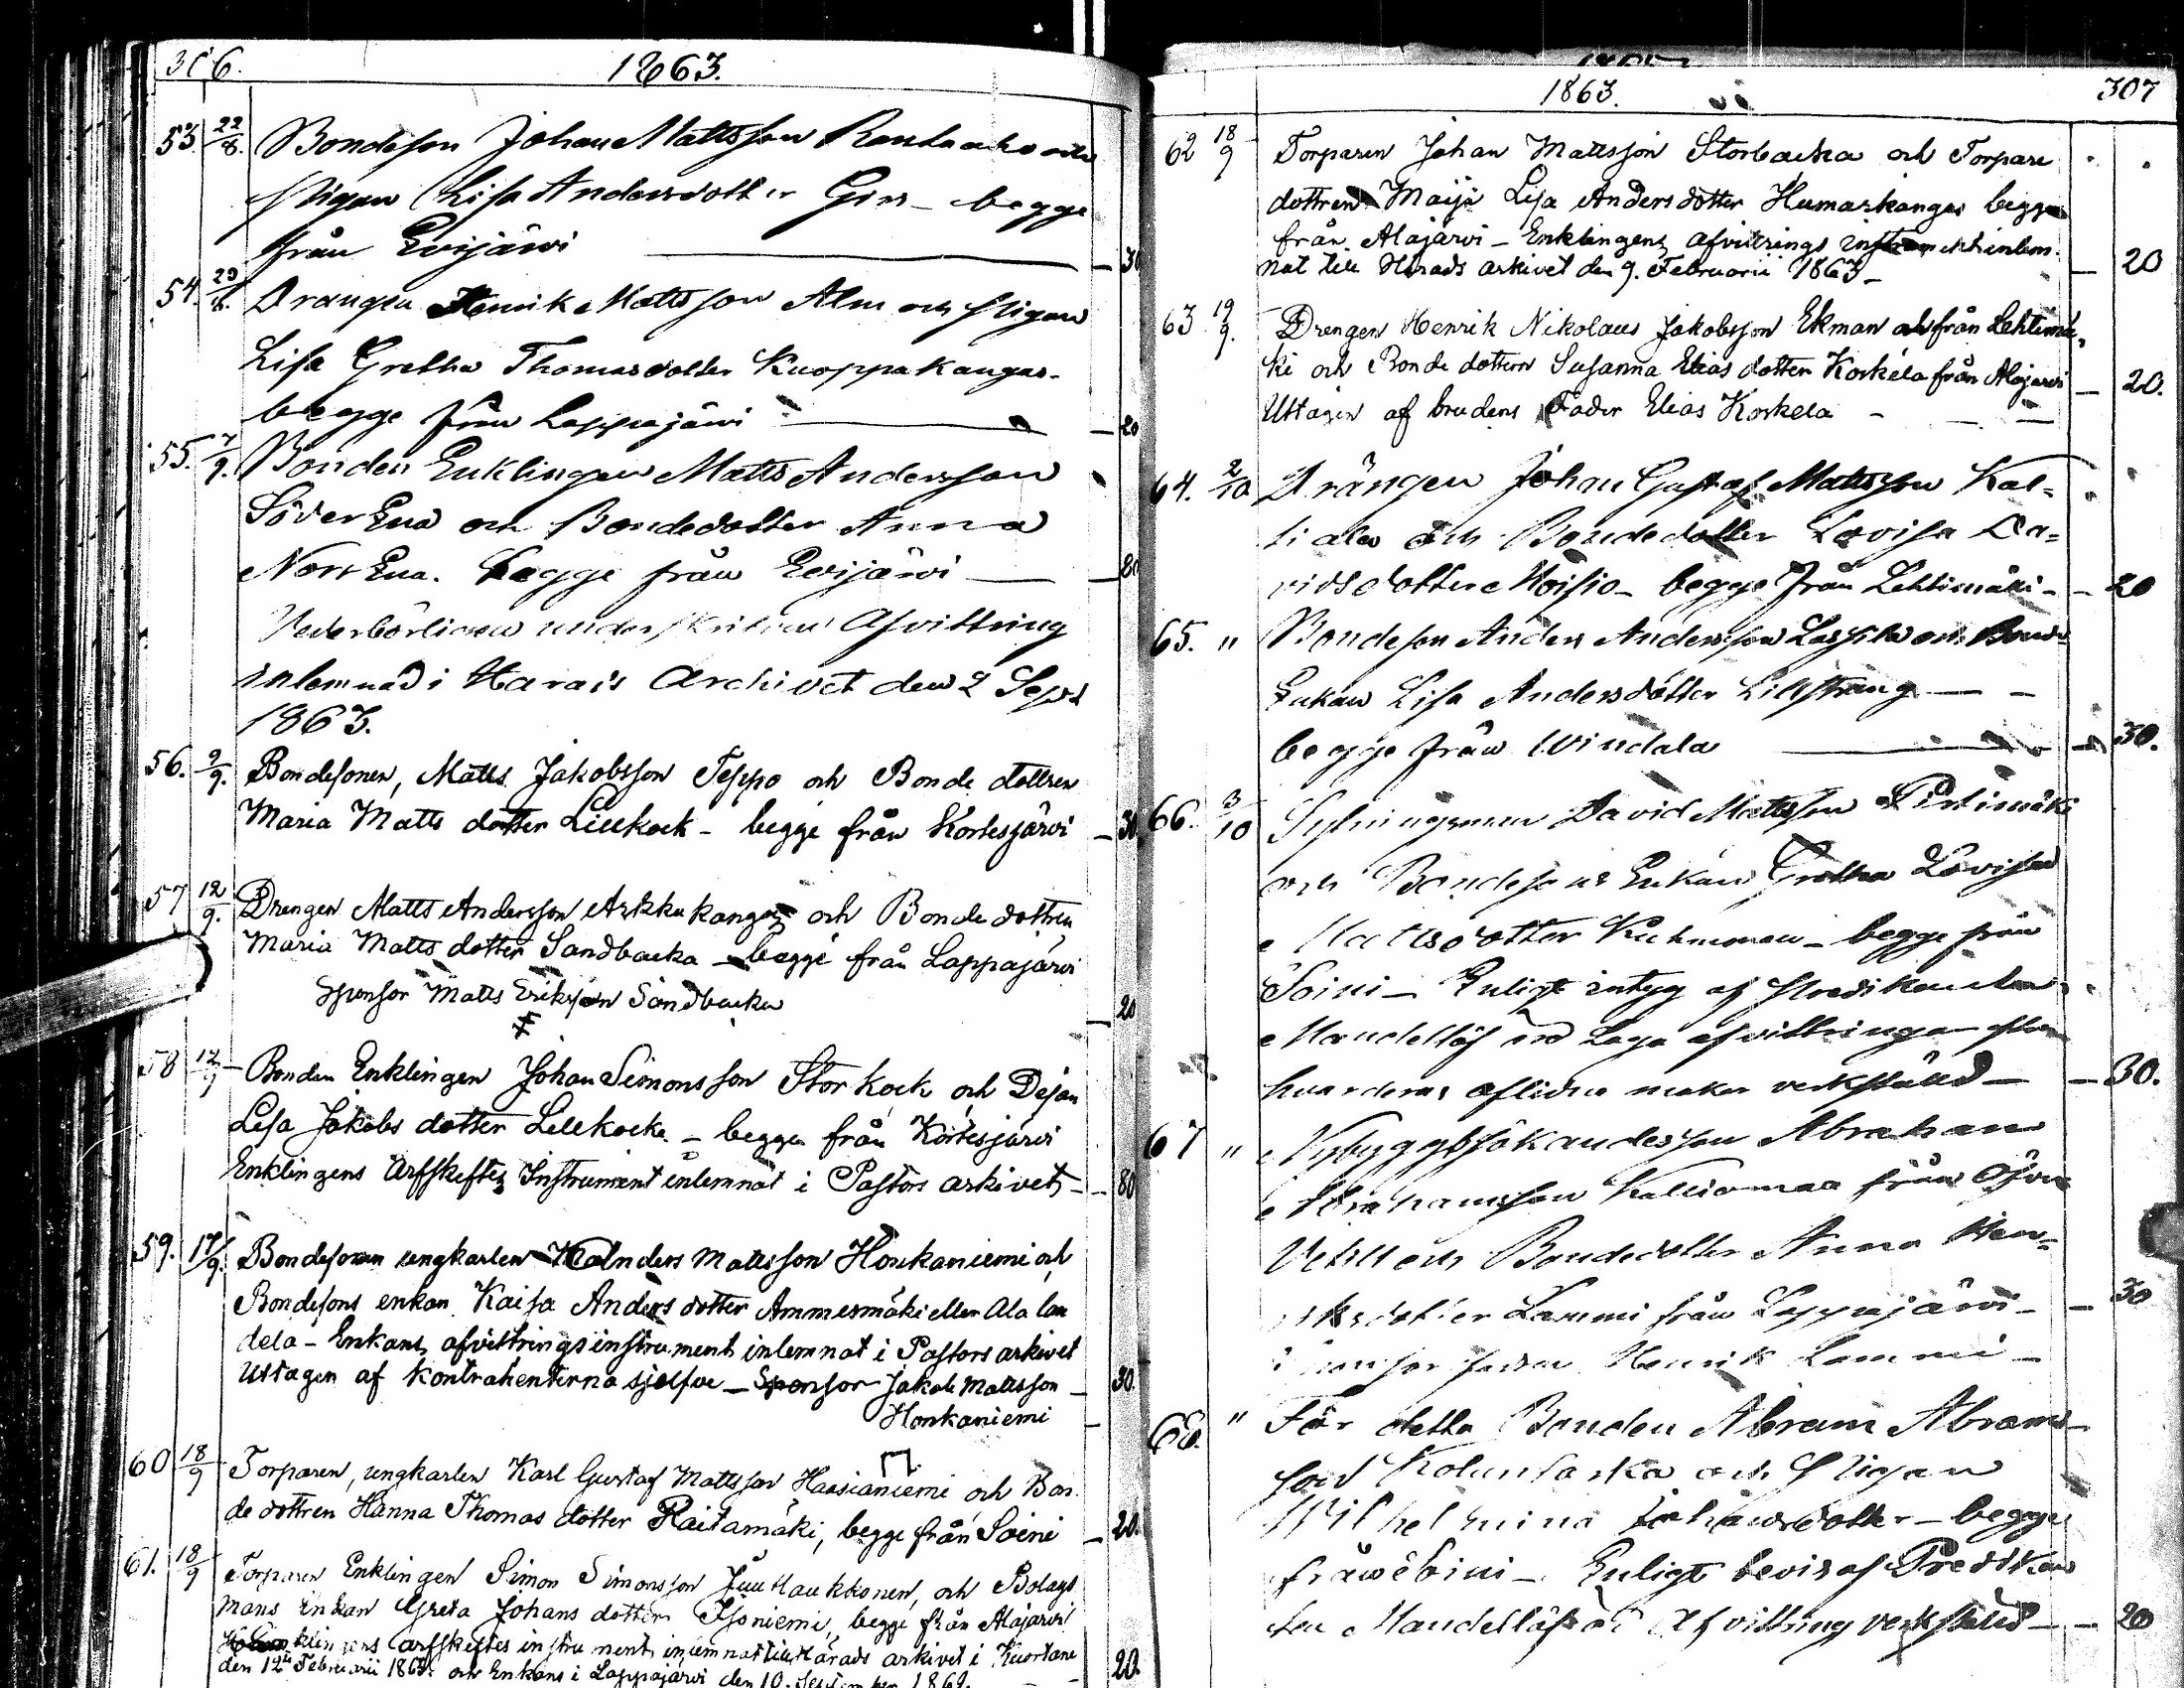 306.
1863.
53. 22/8. Bondeson Johan Mattsson Rantaaho och
Pigan Lisa Andersdotter Gers - begge
från Evijärvi — 30
54. 29/8. Drängen Henrik Mattsson Alm och Pigan
Lisa Gretha Thomasdotter Kuoppakangas
begge från Lappajärvi — 20
55. 7/9. Bonden Enklingen Matts Andersson
Söder Ena och Bondedotter Anna
Norr Ena. begge från Evijärvi — 80
Vederbörligen underskrifven Afvittring
inlemnad i Harads Archivet den 2 Sept
1863.
56. 9/9. Bondesonen, Matts Jakobsson Teppo och Bonde dottren
Maria Matts dotter Lillkock - begge från Kortesjärvi — 30
57 12/9. Drengen Matts Andersson Arkkukangas och Bonde dottren
Maria Matts dotter Sandbacka - begge från Lappajärvi
Sponsor Matts Eriksson Sandbacka — 20
58 12/9 Bonden Enklingen Johan Simonsson Storkock och Dejan
Lisa Jakobs dotter Lillkock - begge från Kortesjärvi
Enklingens Arfskiftes Instrument inlemnat i Pastors arkivet — 80
59. 17/9. Bondesonen ungkarlen Anders Mattsson Honkaniemi och
Bondesons enkan Kaisa Anders dotter Ammesmäki eller Ala lan
dela - Enkans afvittrings instrument inlemnat i Pastors arkivet
Uttagen af kontrahenterna sjelfve - Sponsor Jakob Mattsson — 30.
Honkaniemi
60 18/9 Torparen, ungkarlen Karl Gustaf Mattsson Haasianiemi och Bon
de dottren Hanna Thomas dotter Raitamäki, begge från Soini — 20.
61. 18/9 Torparen Enklingen Simon Simonsson Juu Haukkonen, och Bolags
mans Enkan Greta Johans dotter Isoniemi, begge från Alajärvi
Enklingens arfskiftes instrument inlemnat till Härads arkivet i Kuortane
den 12te Februarii 1863. och Enkans i Lappajärvi den 10. September 186 20.
1863.
307
62 18/9 Torparen Johan Mattsson Storbacka och Torpare
dottren Maija Lisa Anders dotter Humarkangas begge
från Alajärvi - Enklingens afvittrings instrument inlem
nat till Härads arkivet den 9. Februarii 1863 — 20
63 19/9. Drengen Henrik Nikolaus Jakobsson Ekman från Lehtimä
ki och Bonde dottern Susanna Elias dotter Korkela från Alajärvi — 20.
Uttagen af brudens Fader Elias Korkela
64. 2/10 Drängen Johan Gustaf Mattsson Kal=
tiala och Bondedotter Lovisa Da=
vidsdotter Hoisko - begge från Lehtimäki — 20
65. " Bondeson Anders Andersson Lassila och Bonde
Enkan Lisa Andersdotter Lillstrang
begge från Windala — 30.
66. 3/10 Sytningsman David Mattsson Pirtimäki
och Bondesons Enkan Gretha Lovisa
Mattsdotter Kuhmonen - begge från
Soini - Enligt intyg af Predikanten
Mandellöf är Laga afvittringar efter
hvarderas aflidna makar verkställd — 30.
67 " Nybyggssökandesson Abraham
Abrahamsson Kalliomaa från Öfver
Vetill och Bondedotter Anna Hen=
riksdotter Lammi från Lappajärvi — 30
Sponsor fadren Henrik Lammi
68. "För detta Bonden Abram Abrams
son Kolunsarka och Pigan
Wilhelmina Johansdotter - begge
från Soini - Enligt bevis af Predikan
ten Mandellöf är Afvittring verkställd — 20